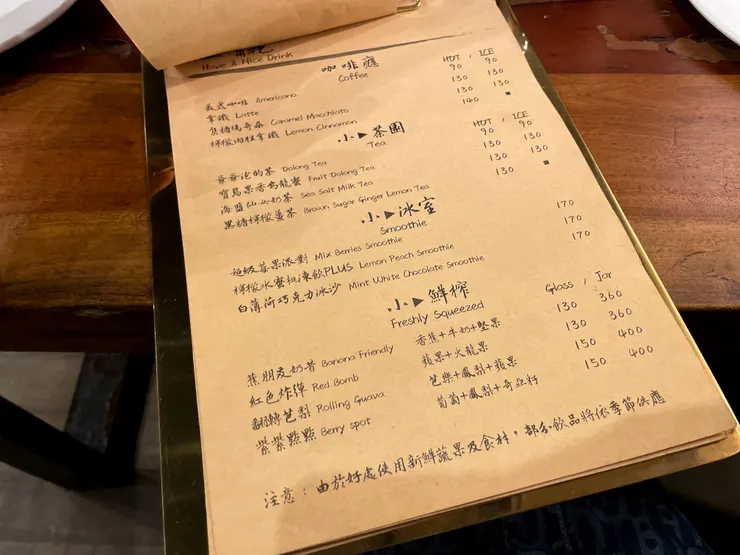 Have A Nice Drink
咖啡應 HOT / ICE
Coffee
美式咖啡 Americano 90 90
拿鐵 Latte 130 130
焦糖瑪奇朵 Caramel Macchiato 130 130
檸檬肉桂拿鐵 Lemon Cinnamon 140 ■
小▶茶園 HOT / ICE
Tea
爺爺泡的茶 Oolong Tea 90 90
寶島果香烏龍蜜 Fruit Oolong Tea 130 130
海鹽仙女奶茶 Sea Salt Milk Tea 130 130
黑糖檸檬薑茶 Brown Sugar Ginger Lemon Tea 130 ■
小▶冰室
Smoothie
超級莓果派對 Mix Berries Smoothie 170
檸檬水蜜桃凍飲PLUS Lemon Peach Smoothie 170
白薄荷巧克力冰沙 Mint White Chocolate Smoothie 170
小▶鮮榨 Glass / Jar
Freshly Squeezed
蕉朋友奶昔 Banana Friendly 香蕉+牛奶+堅果 130 360
紅色炸彈 Red Bomb 蘋果+火龍果 130 360
翻轉芭梨 Rolling Guava 芭樂+鳳梨+蘋果 150 400
紫紫點點 Berry Spot 葡萄+鳳梨+奇亞籽 150 400
注意:由於好處使用新鮮蔬果及食材,部分飲品將依季節供應